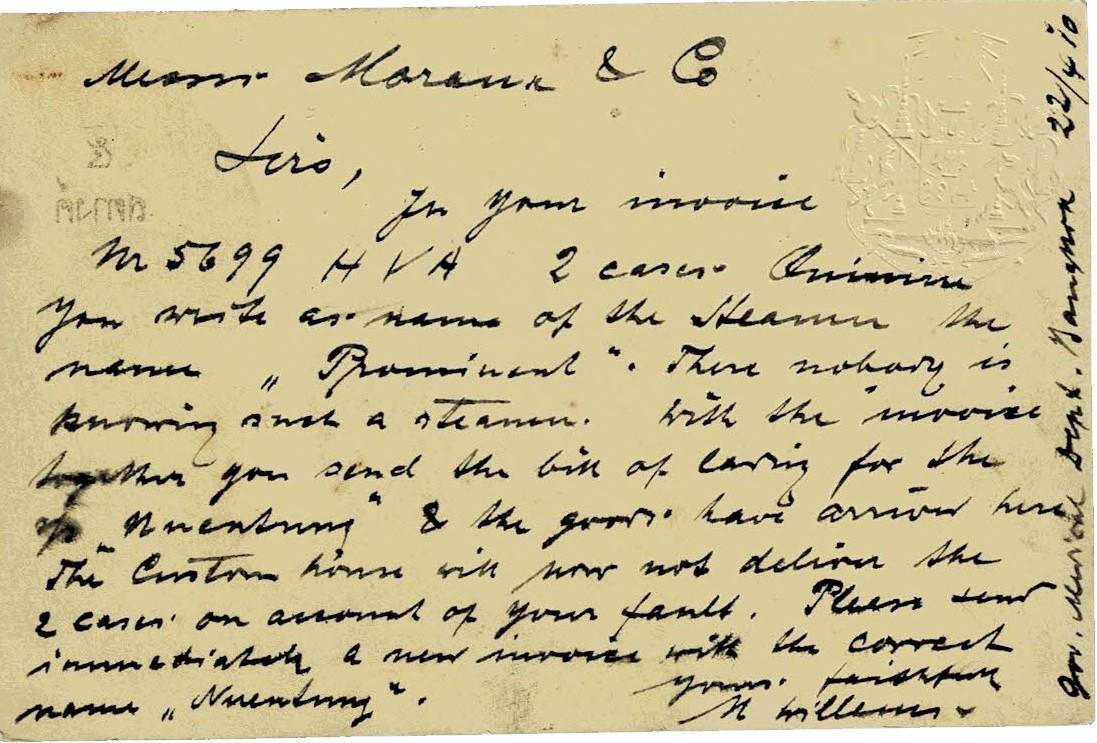 Messrs Moraux & Co
Sirs,
In your invoice
Nr 5699 HVH 2 cases Quinine
you write as name of the Steamer the
name „Prominent". There nobody is
knowing such a steamer. With the invoice
together you send the bill of lading for the
"Nuentung" & the goods have arrived here
The Custom house will now not deliver the
2 cases on account of your fault. Please send
immediately a new invoice with the correct
name „Nuentung".
yours faithfull
M Willems
Gov. Medical Dept. Bangkok 22/4 10